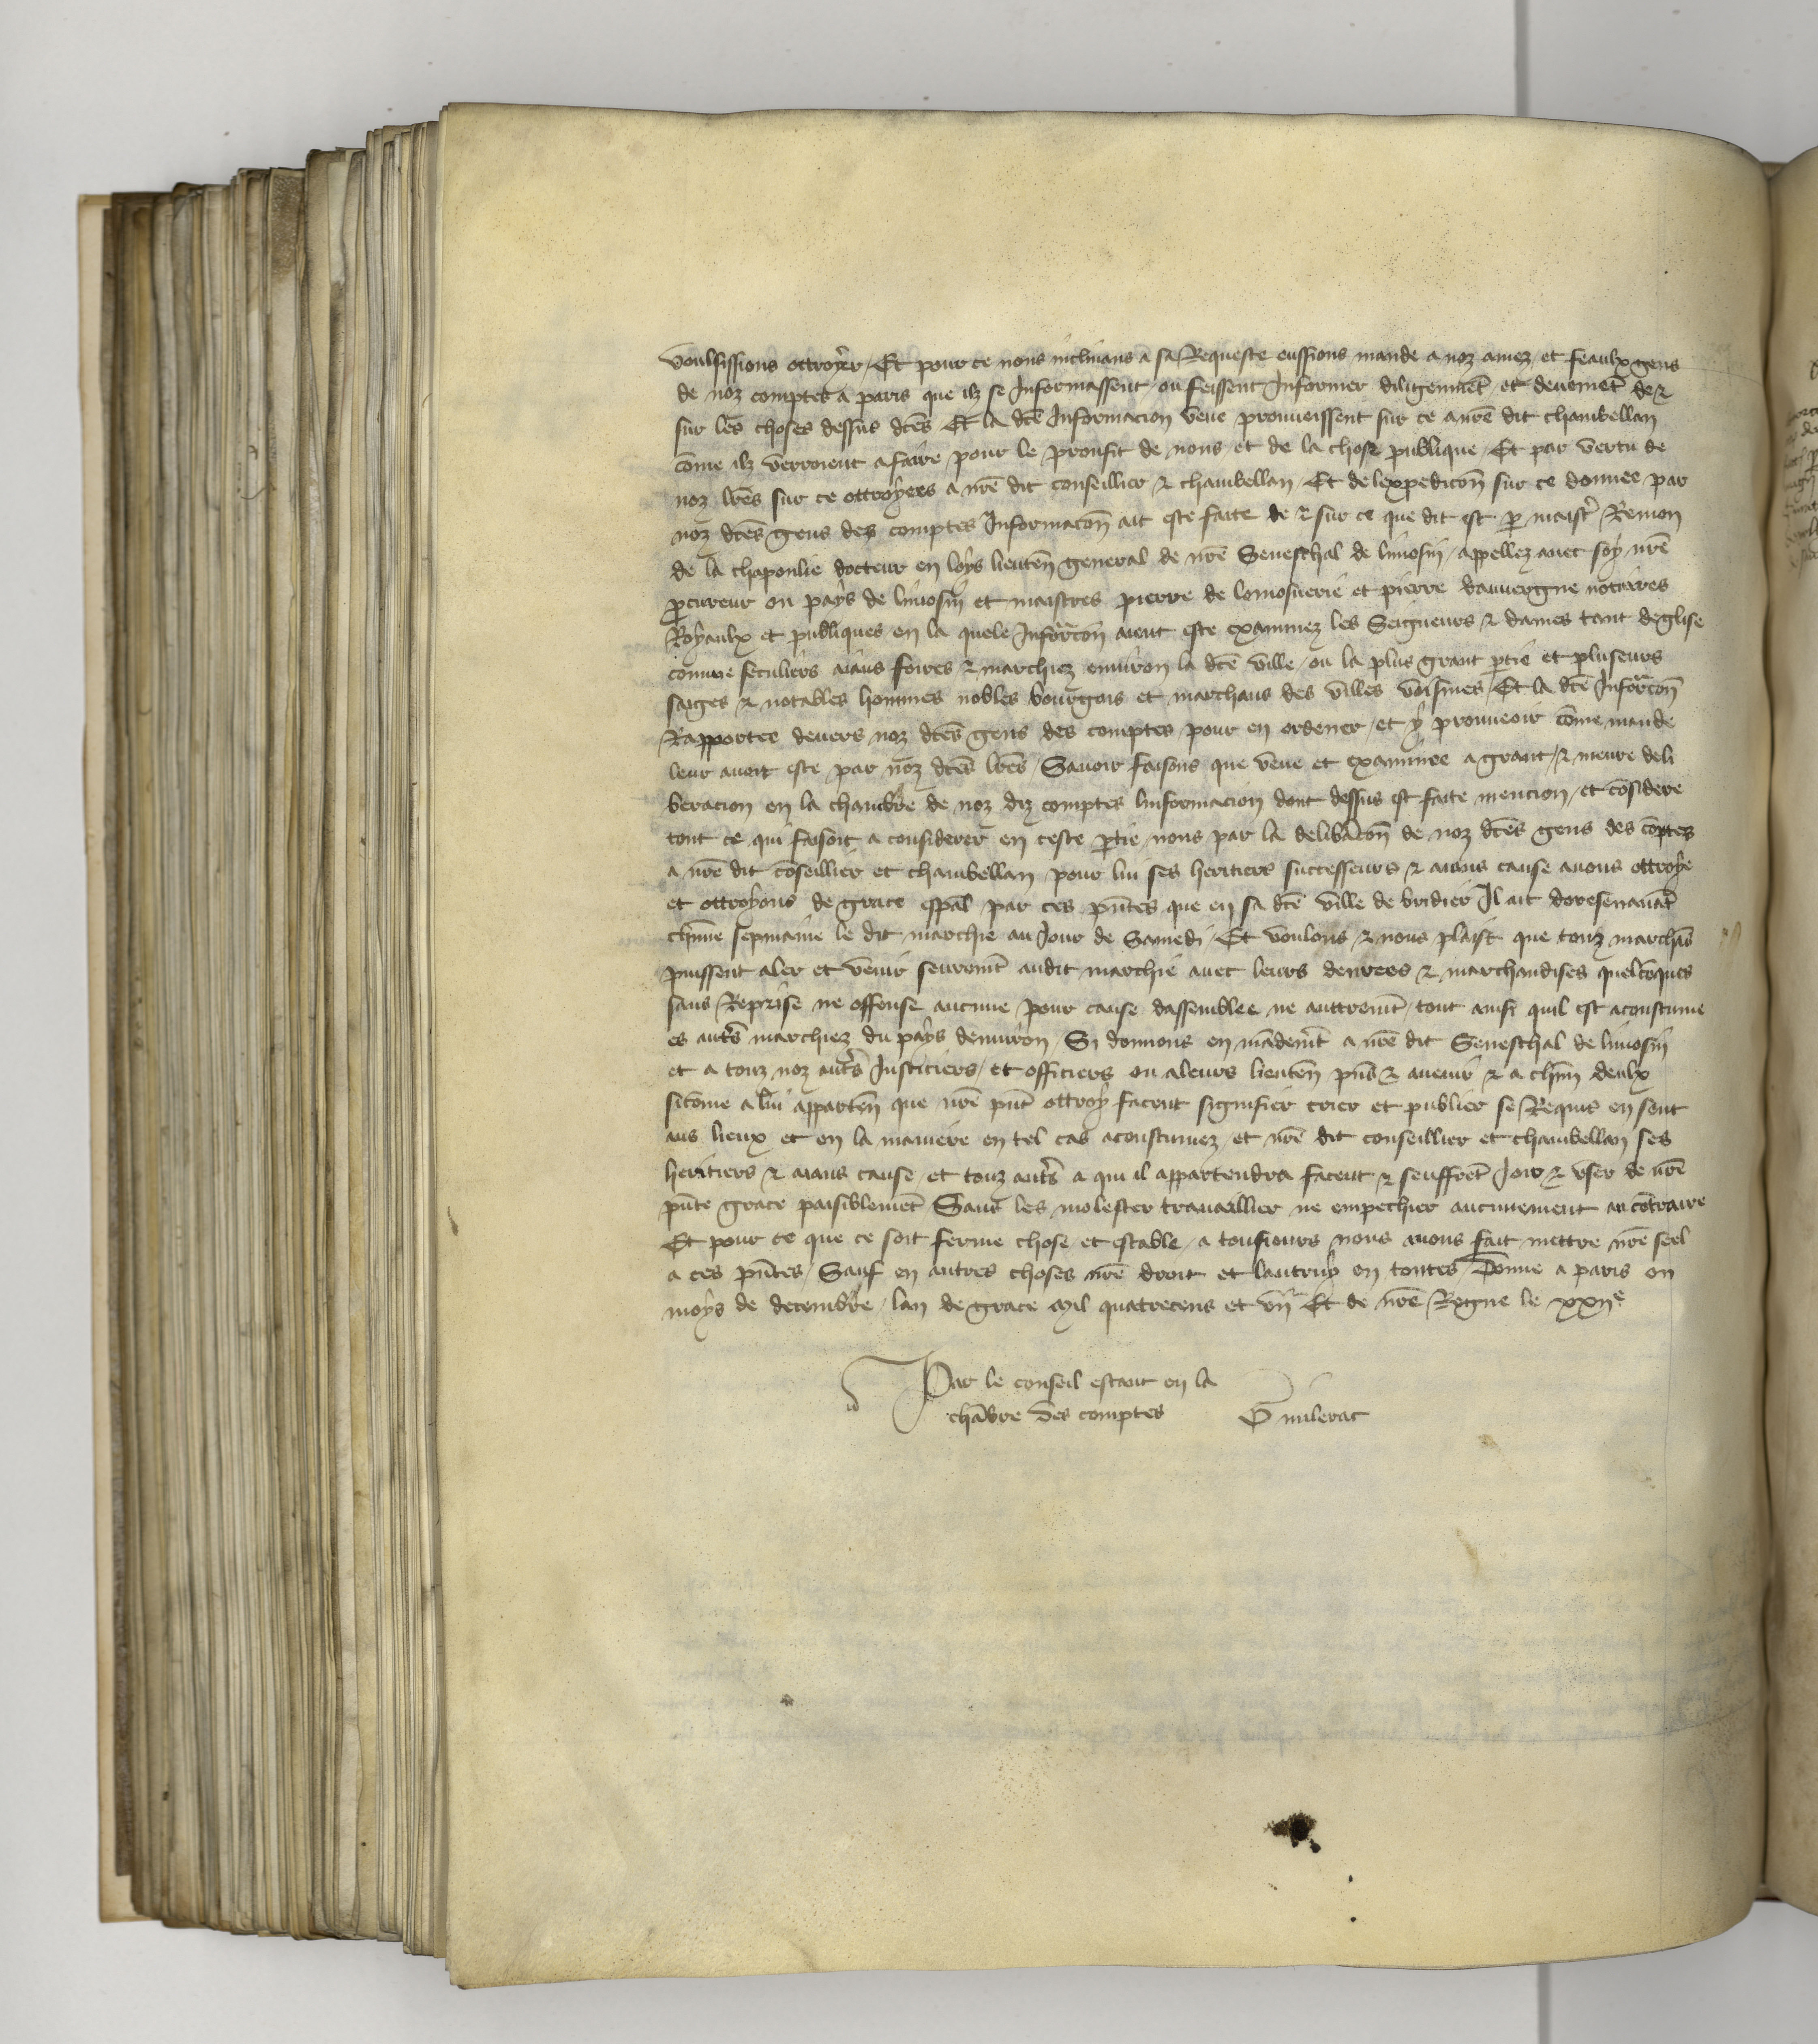 voulsissions ottroyer / Et pour ce nous inclinans a sa Requeste eussions mande a noz amez et feaulx gens
de noz comptes a paris que ilz se Informassent / ou feissent Informer diligenmēt et deuemēt de ⁊
sur les choses dessus dc̄es Et la dc̄e Informacion veue prouueissent sur ce a nr̄e dit chambellan
cōme ilz verroient a faire pour le proufit de nous et de la chose publique / Et par vertu de
noz lr̄es sur ce ottroyees a nr̄e dit conseillier ⁊ chambellan / Et de lexpedicōn sur ce donnee par
noz dc̄es gens des comptes Informacōn ait este faite de ⁊ sur ce que dit est ꝑ maistr̄ Remon
de la chapoulie docteur en loys lieuten̄ general de nr̄e Seneschal de limosin / appellez auec soy nr̄e
ꝓcureur ou pays de limosin et maistres pierre de lomosnerie et pierre dauuergne notaires
Royaulx et publiques en la quele Informac̄on aient este examinez les Seigneurs ⁊ dames tant deglise
comme seculiers aians foires ⁊ marchiez enuiron la dc̄e ville / ou la plus grant ꝑtie et pluseurs
saiges ⁊ notables hommes nobles bourgois et marchans des villes voisines / Et la dc̄e Informac̄on
Rapportee deuers noz dc̄es gens des comptes pour en ordener / et y prouueoir cōme mande
leur auoit este par noz dc̄es lr̄es / Sauoir faisons que veue et examinee a grant ⁊ meure deli
beracion en la chambre de noz diz comptes linformacion dont dessus est faite mencion / et cōsidere
tout ce qui faisoit a considerer en ceste ꝑtie / nous par la deliberacōn de noz dc̄es gens des cōptes
a nr̄e dit cōseillier et chambellan pour lui ses heritiers successeurs ⁊ aians cause auons ottroye
et ottroyons de grace esp̄al par ces pn̄tes que en sa dc̄e ville de bridier Il ait doresenauāt
chūne sepmaine le dit marchie au Jour de Samedi / Et voulons ⁊ nous plaist que touz marchās
puissent aler et venir seuremēt audit marchie auec leurs denrees ⁊ marchandises quelcōques
sans Reprise ne offense aucune pour cause dassemblee ne auttremēt / tout ainsi quil est acoustume
es autr̄s marchiez du pays denuiron / Si donnons en mādemēt a nr̄e dit Seneschal de limosin
et a touz noz autr̄s Justiciers / et officiers ou a leurs lieuten̄ pn̄s ⁊ auenir ⁊ a chūn deulx
sicōme a lui apparten̄ que nr̄e pn̄t ottroy facent signifier crier et publier se Requis en sont
aus lieux et en la maniere en tel cas acoustumez / et nr̄e dit conseillier et chambellan ses
heritiers ⁊ aians cause / et touz autr̄s a qui il appartendra facent ⁊ seuffrēt Joir ⁊ vser de nr̄e
pn̄te grace paisiblemēt Sans les molester trauaillier ne empechier aucunement au cōtraire
Et pour ce que ce soit ferme chose et estable / a tousiours nous auons fait mettre nr̄e seel
a ces pn̄tes / Sauf en autres choses nr̄e droit et lautruy en toutes / Donne a paris ou
moys de decembre / lan de grace mil quatrecens et vn Et de nr̄e Regne le xxiiᵉ
Par le conseil estant en la
chābre des comptes G milerac